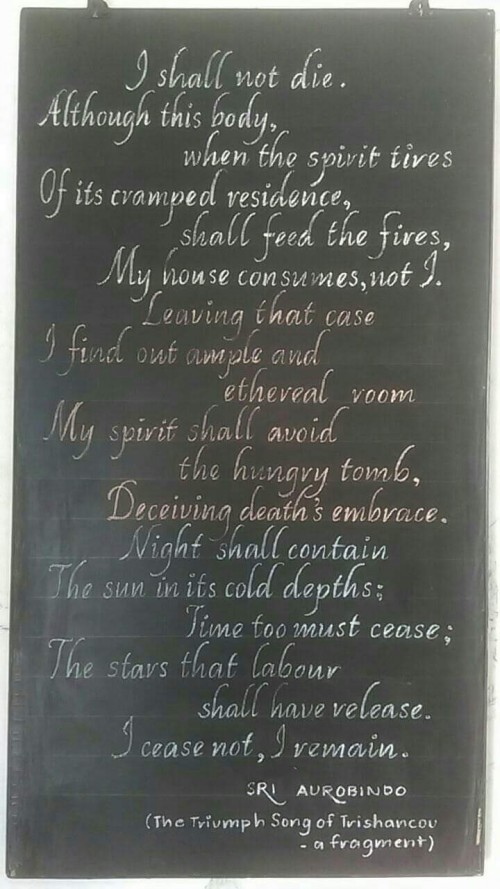 I shall not die.
Although this body,
when the spirit tires
Of its cramped residence,
shall feed the fires,
My house consumes, not I.
Leaving that case
I find out ample and
ethereal room
My spirit shall avoid
the hungry tomb,
Deceiving death's embrace.
Night shall contain
The sun in its cold depths;
Time too must cease;
The stars that labour
shall have release.
I cease not, I remain.
SRI AUROBINDO
(The Triumph Song of Trishancou
- a fragment)